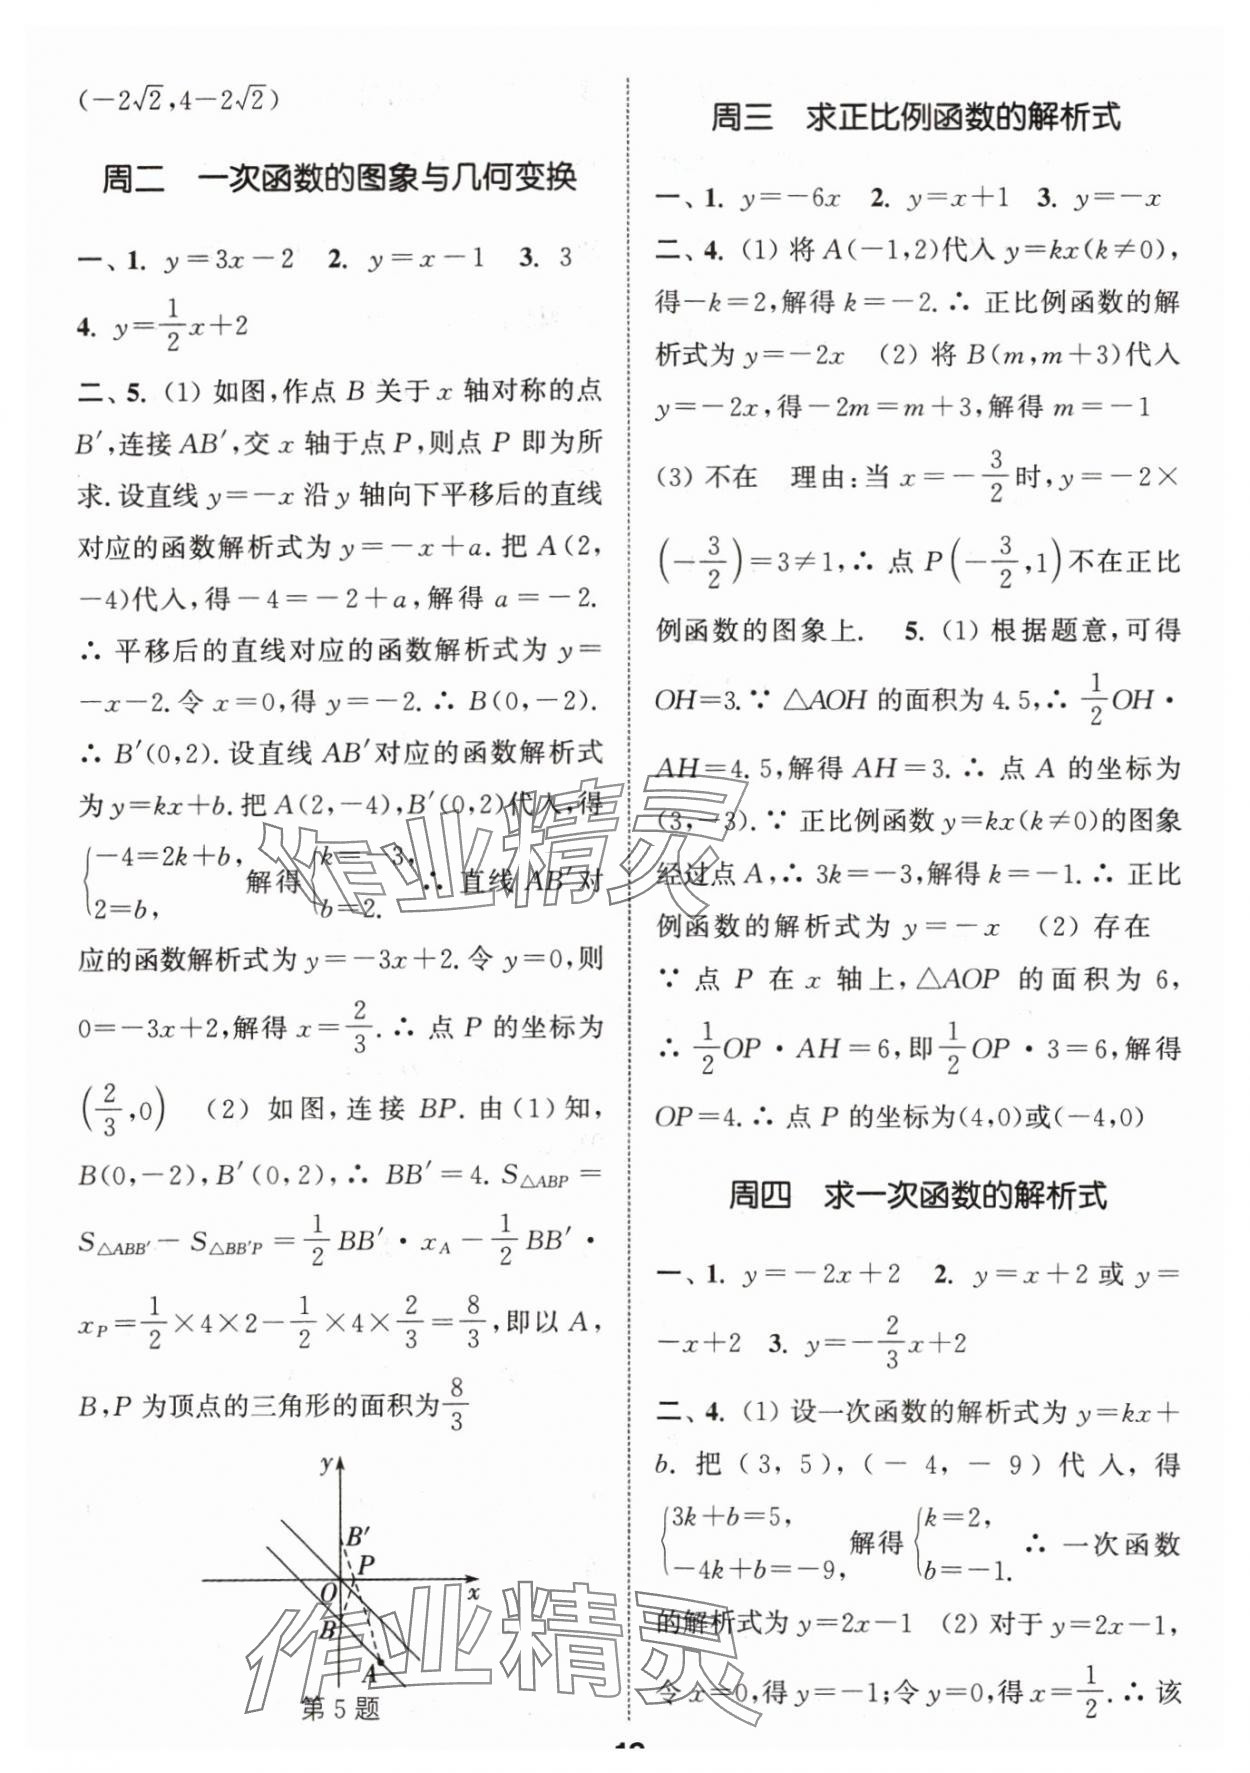 (－2√2,4－2√2)
周二　一次函数的图象与几何变换
一、1. y＝3x－2　2. y＝x－1　3. 3
4. y＝1/2x＋2
二、5. (1) 如图,作点 B 关于 x 轴对称的点
B′,连接 AB′,交 x 轴于点 P,则点 P 即为所
求. 设直线 y＝－x 沿 y 轴向下平移后的直线
对应的函数解析式为 y＝－x＋a. 把 A(2,
－4)代入,得－4＝－2＋a,解得 a＝－2.
∴ 平移后的直线对应的函数解析式为 y＝
－x－2. 令 x＝0,得 y＝－2. ∴ B(0,－2).
∴ B′(0,2). 设直线 AB′对应的函数解析式
为 y＝kx＋b. 把 A(2,－4),B′(0,2)代入,得
{－4＝2k＋b, 2＝b, 解得{k＝－3, b＝2. ∴ 直线 AB′对
应的函数解析式为 y＝－3x＋2. 令 y＝0,则
0＝－3x＋2,解得 x＝2/3. ∴ 点 P 的坐标为
(2/3,0)　(2) 如图,连接 BP. 由(1)知,
B(0,－2),B′(0,2),∴ BB′＝4. S△ABP＝
S△ABB′－S△BB′P＝1/2BB′·xA－1/2BB′·
xP＝1/2×4×2－1/2×4×2/3＝8/3,即以 A,
B,P 为顶点的三角形的面积为8/3
y
B′
P
O
x
B
A
第 5 题
周三　求正比例函数的解析式
一、1. y＝－6x　2. y＝x＋1　3. y＝－x
二、4. (1) 将 A(－1,2)代入 y＝kx(k≠0),
得－k＝2,解得 k＝－2. ∴ 正比例函数的解
析式为 y＝－2x　(2) 将 B(m,m＋3)代入
y＝－2x,得－2m＝m＋3,解得 m＝－1
(3) 不在　理由:当 x＝－3/2时,y＝－2×
(－3/2)＝3≠1,∴ 点 P(－3/2,1)不在正比
例函数的图象上.　5. (1) 根据题意,可得
OH＝3. ∵ △AOH 的面积为 4.5,∴ 1/2OH·
AH＝4.5,解得 AH＝3. ∴ 点 A 的坐标为
(3,－3). ∵ 正比例函数 y＝kx(k≠0)的图象
经过点 A,∴ 3k＝－3,解得 k＝－1. ∴ 正比
例函数的解析式为 y＝－x　(2) 存在
∵ 点 P 在 x 轴上,△AOP 的面积为 6,
∴ 1/2OP·AH＝6,即1/2OP·3＝6,解得
OP＝4. ∴ 点 P 的坐标为(4,0)或(－4,0)
周四　求一次函数的解析式
一、1. y＝－2x＋2　2. y＝x＋2 或 y＝
－x＋2　3. y＝－2/3x＋2
二、4. (1) 设一次函数的解析式为 y＝kx＋
b. 把(3,5),(－4,－9)代入,得
{3k＋b＝5, －4k＋b＝－9, 解得{k＝2, b＝－1. ∴ 一次函数
的解析式为 y＝2x－1　(2) 对于 y＝2x－1,
令 x＝0,得 y＝－1;令 y＝0,得 x＝1/2. ∴ 该
作业精灵
作业精灵